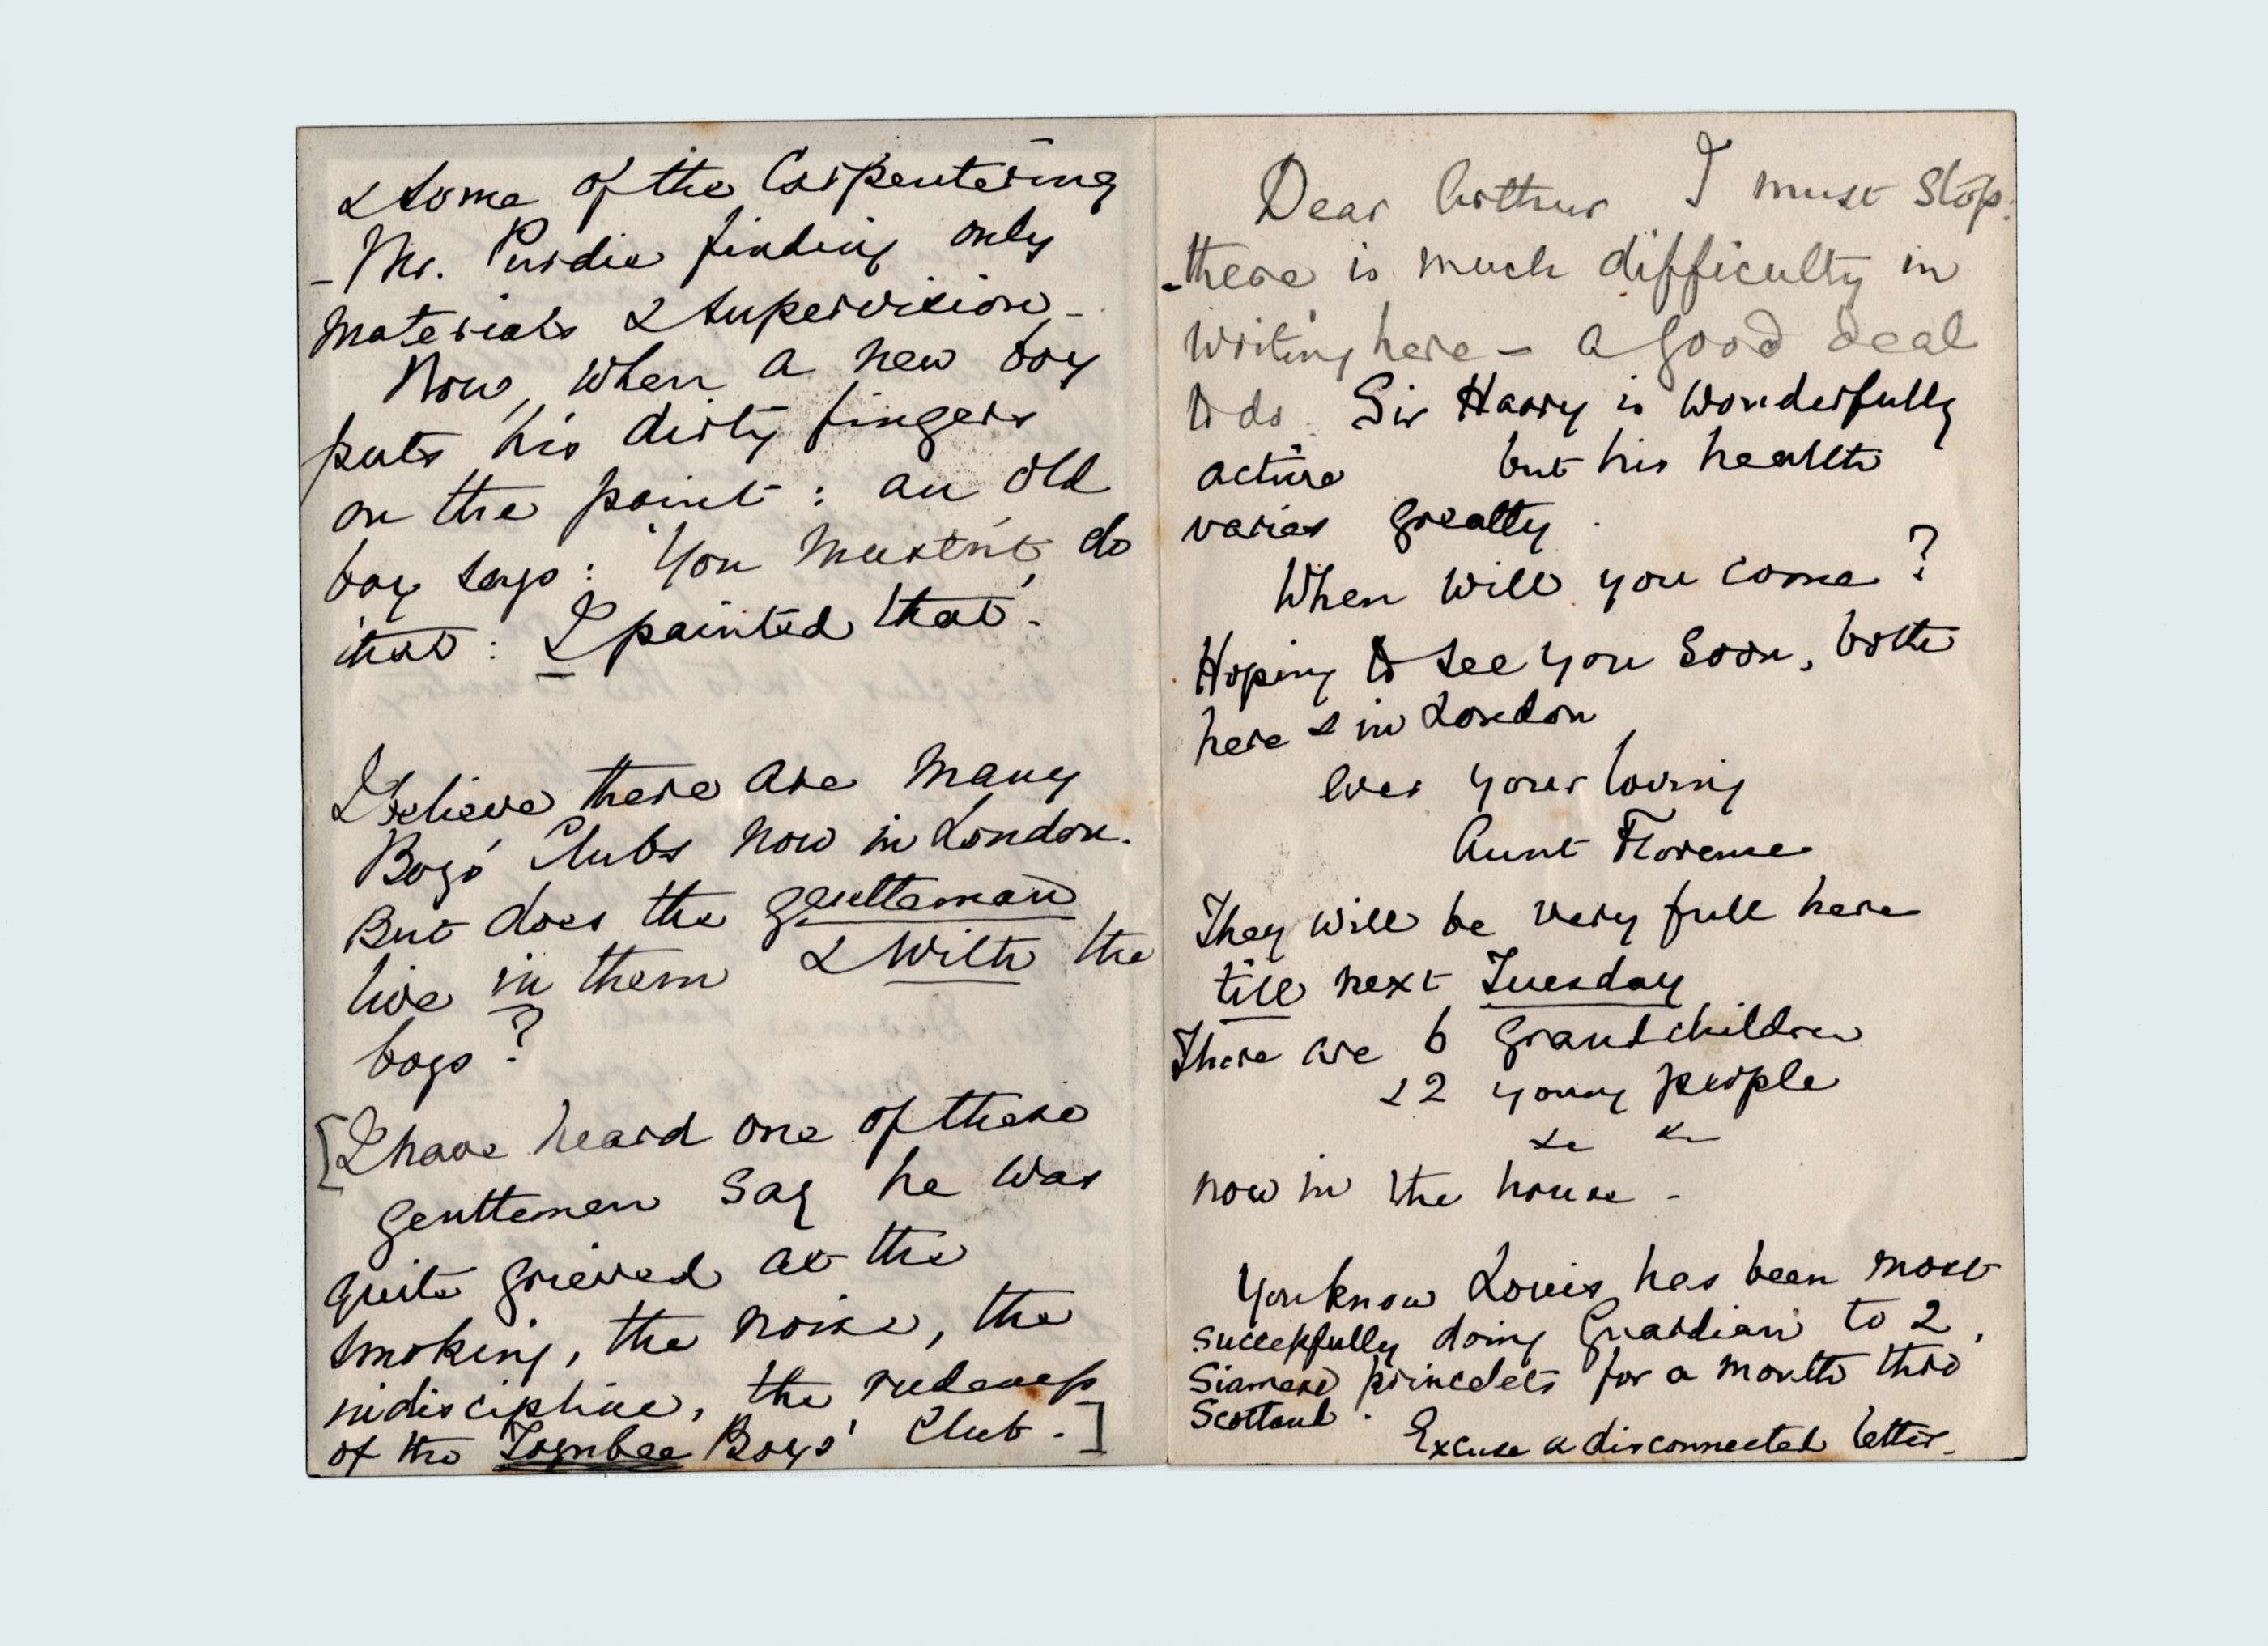 & some of the Carpentering
- Mr. Purdie finding only
materials & supervision -
Now, when a new boy
puts his dirty fingers
on the paint : an old
boy says : 'You mustn't do
that : I painted that'.
I believe there are many
Boys' Clubs now in London.
But does the gentleman
live in them & with the
boys ?
[I have heard one of these
gentlemen say he was
quite grieved at the
smoking, the noise, the
indiscipline, the rudeness
of the Toynbee Boys' Club.]
Dear Arthur I must stop:
- there is much difficulty in
writing here - a good deal
to do. Sir Harry is wonderfully
active but his health
varies greatly.
When will you come ?
Hoping to see you soon, both
here & in London
ever your loving
Aunt Florence
They will be very full here
till next Tuesday
There are 6 grandchildren
& 2 young people
&c &c
now in the house -
You know Louis has been most
successfully doing Guardian to 2
Siamese princelets for a month thro'
Scotland.
Excuse a disconnected letter.